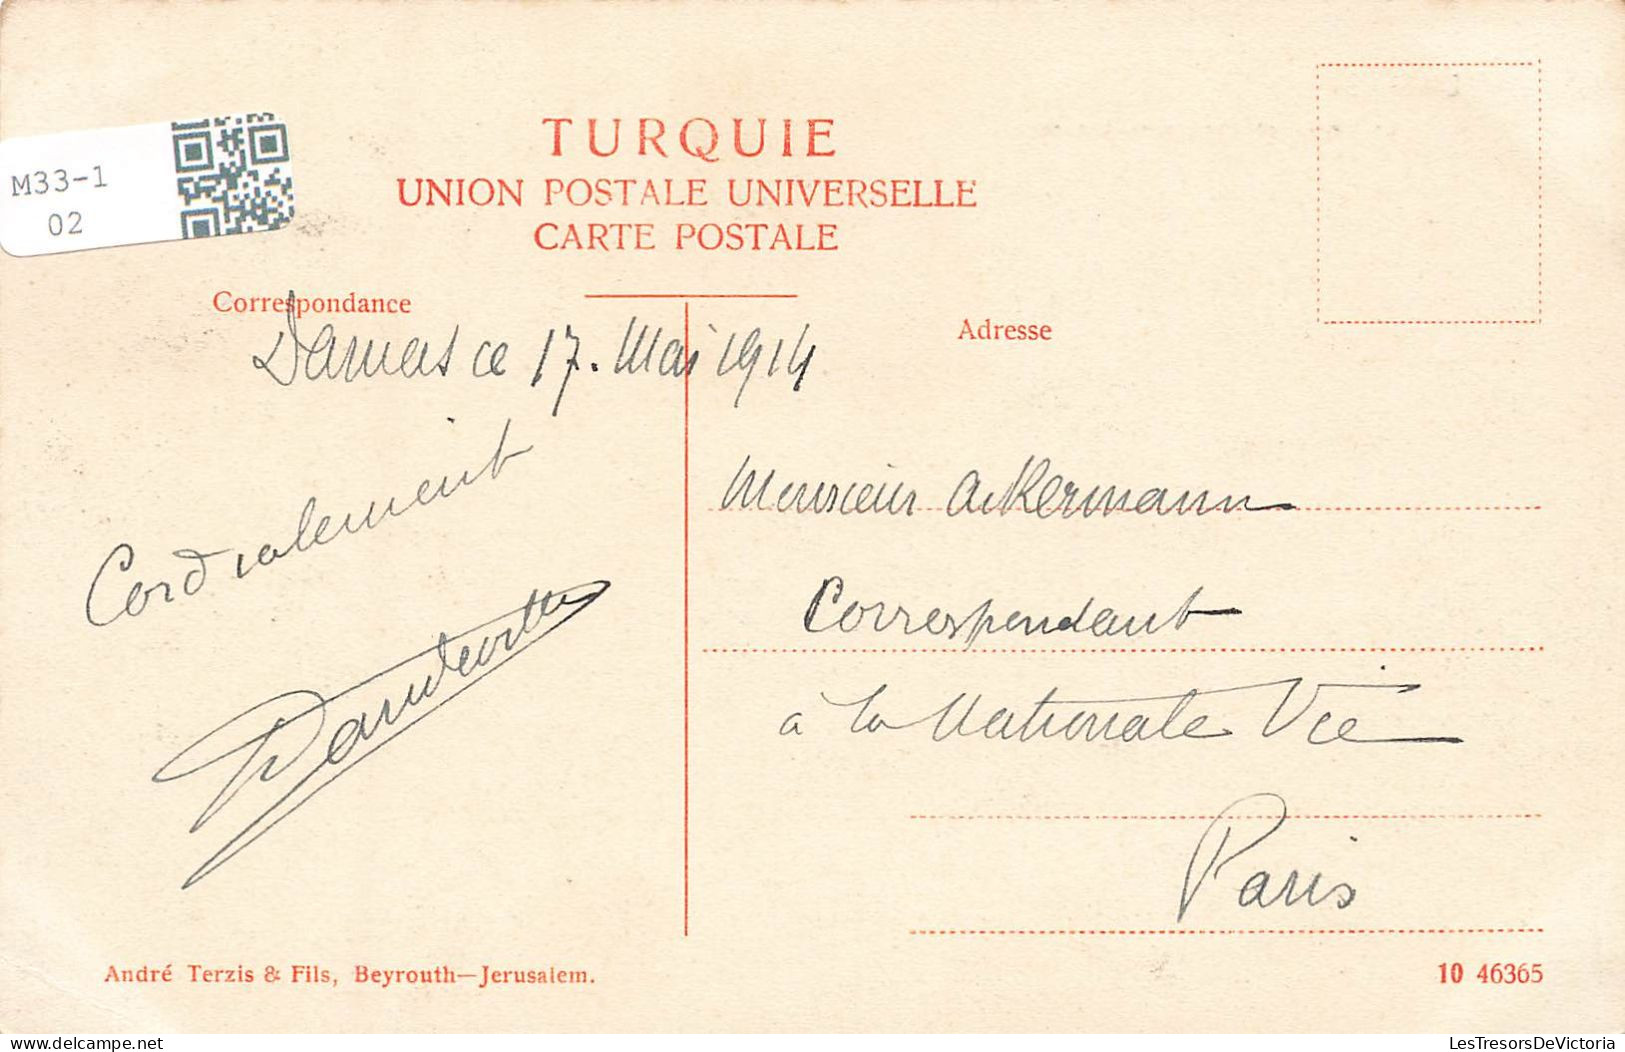 TURQUIE
UNION POSTALE UNIVERSELLE
CARTE POSTALE
M33-1
02
Correspondance
Adresse
Damas ce 17. Mai 1914
Cordialement
Monsieur Ackermann
Correspondant
à la Nationale Vie
Paris
André Terzis & Fils, Beyrouth—Jerusalem.
10 46365
LesTresorsDeVictoria
https://www.delcampe.net
LesTresorsDeVictoria